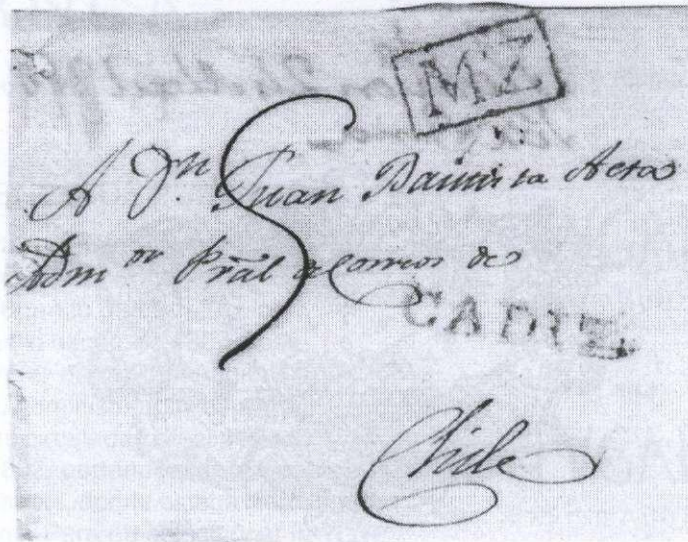 MZ
A Dn. Juan Bautista
Admor Pral de Correos de
CADIZ
Chile